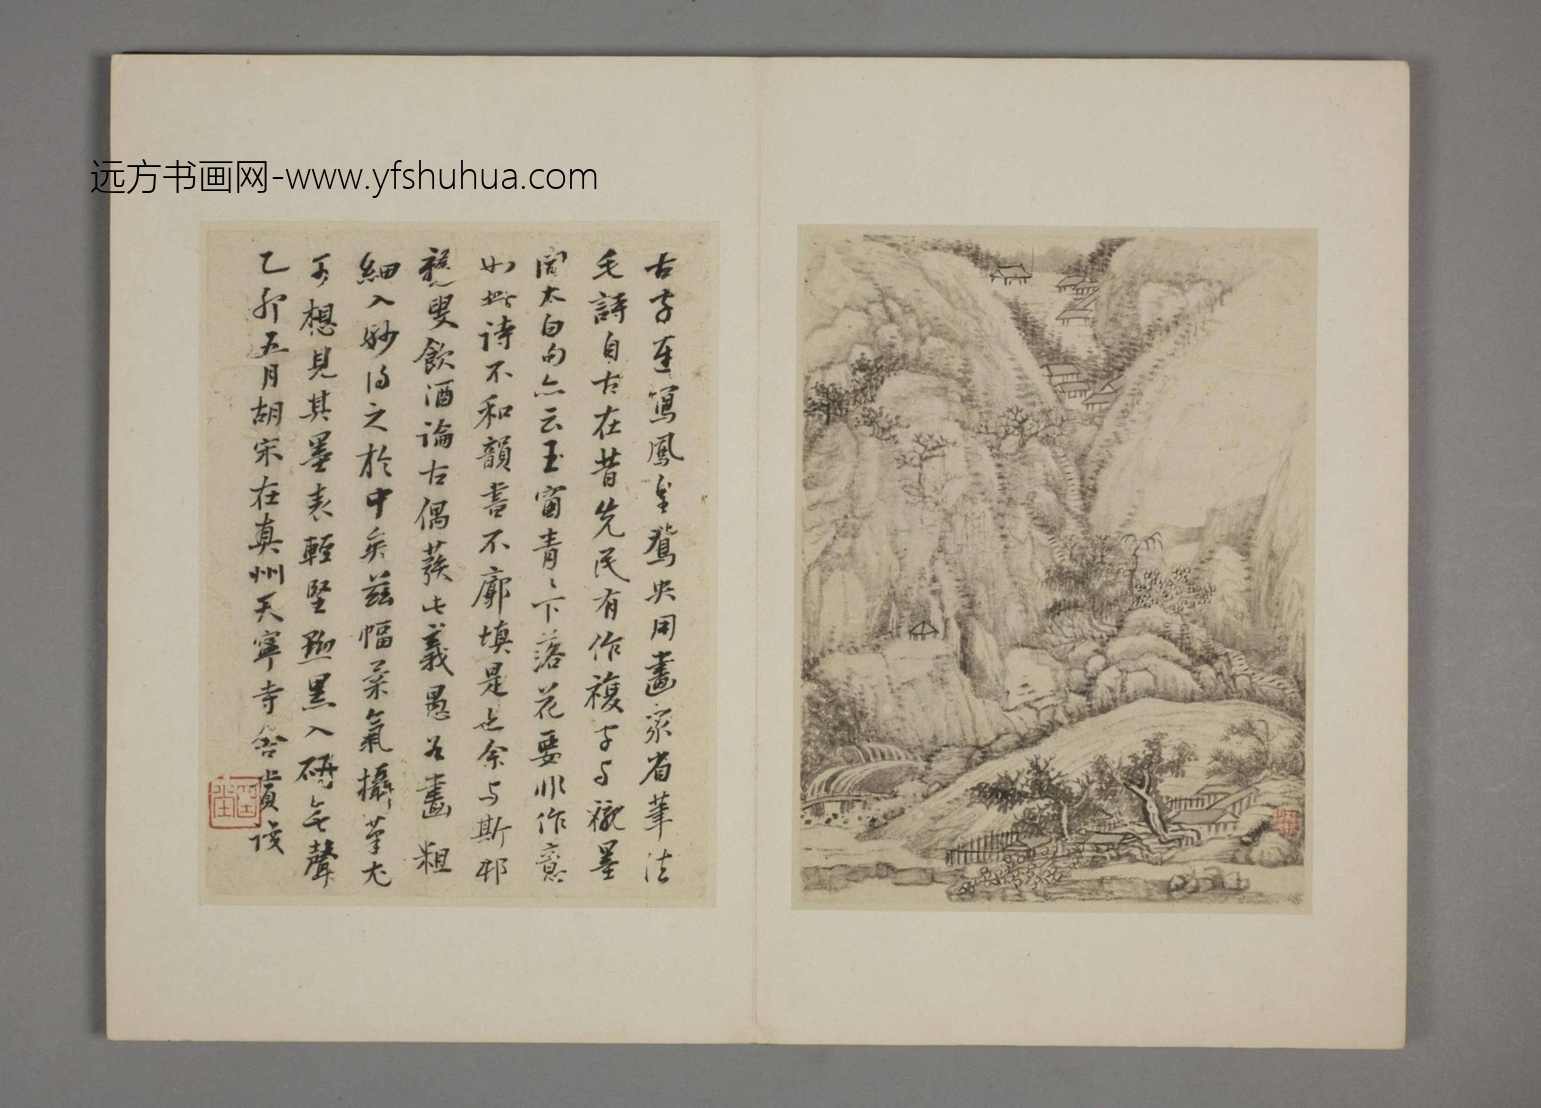 远方书画网-www.yfshuhua.com
古字直寫鳳皇鴛央用畫家省筆法
毛詩自古在昔先民有作複字与襯墨
同太白句亦云玉窗青〻下落花要非作意
如此詩不和韻書不廓填是也余与斯邨
穉叟飲酒論古偶發此義愚谷畫粗
細入妙得之於中矣茲幅菜氣攝筆尤
可想見其墨表輕堅黝黑入研無聲
乙卯五月胡宋在真州天寧寺 賓識